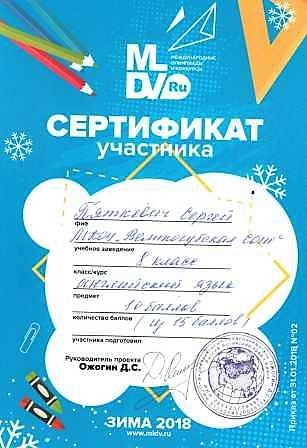 MLDV.Ru
МЕЖДУНАРОДНЫЕ
ОЛИМПИАДЫ
И КОНКУРСЫ
СЕРТИФИКАТ
участника
Пяткевич Сергей
ФИО
МКОУ "Великогубская сош"
учебное заведение
8 класс
класс/курс
английский язык
предмет
10 баллов
количество баллов (из 15 баллов)
участника подготовил
Руководитель проекта
Ожогин Д.С.
ЗИМА 2018
www.mldv.ru
Приказ от 31.01.2018 №02